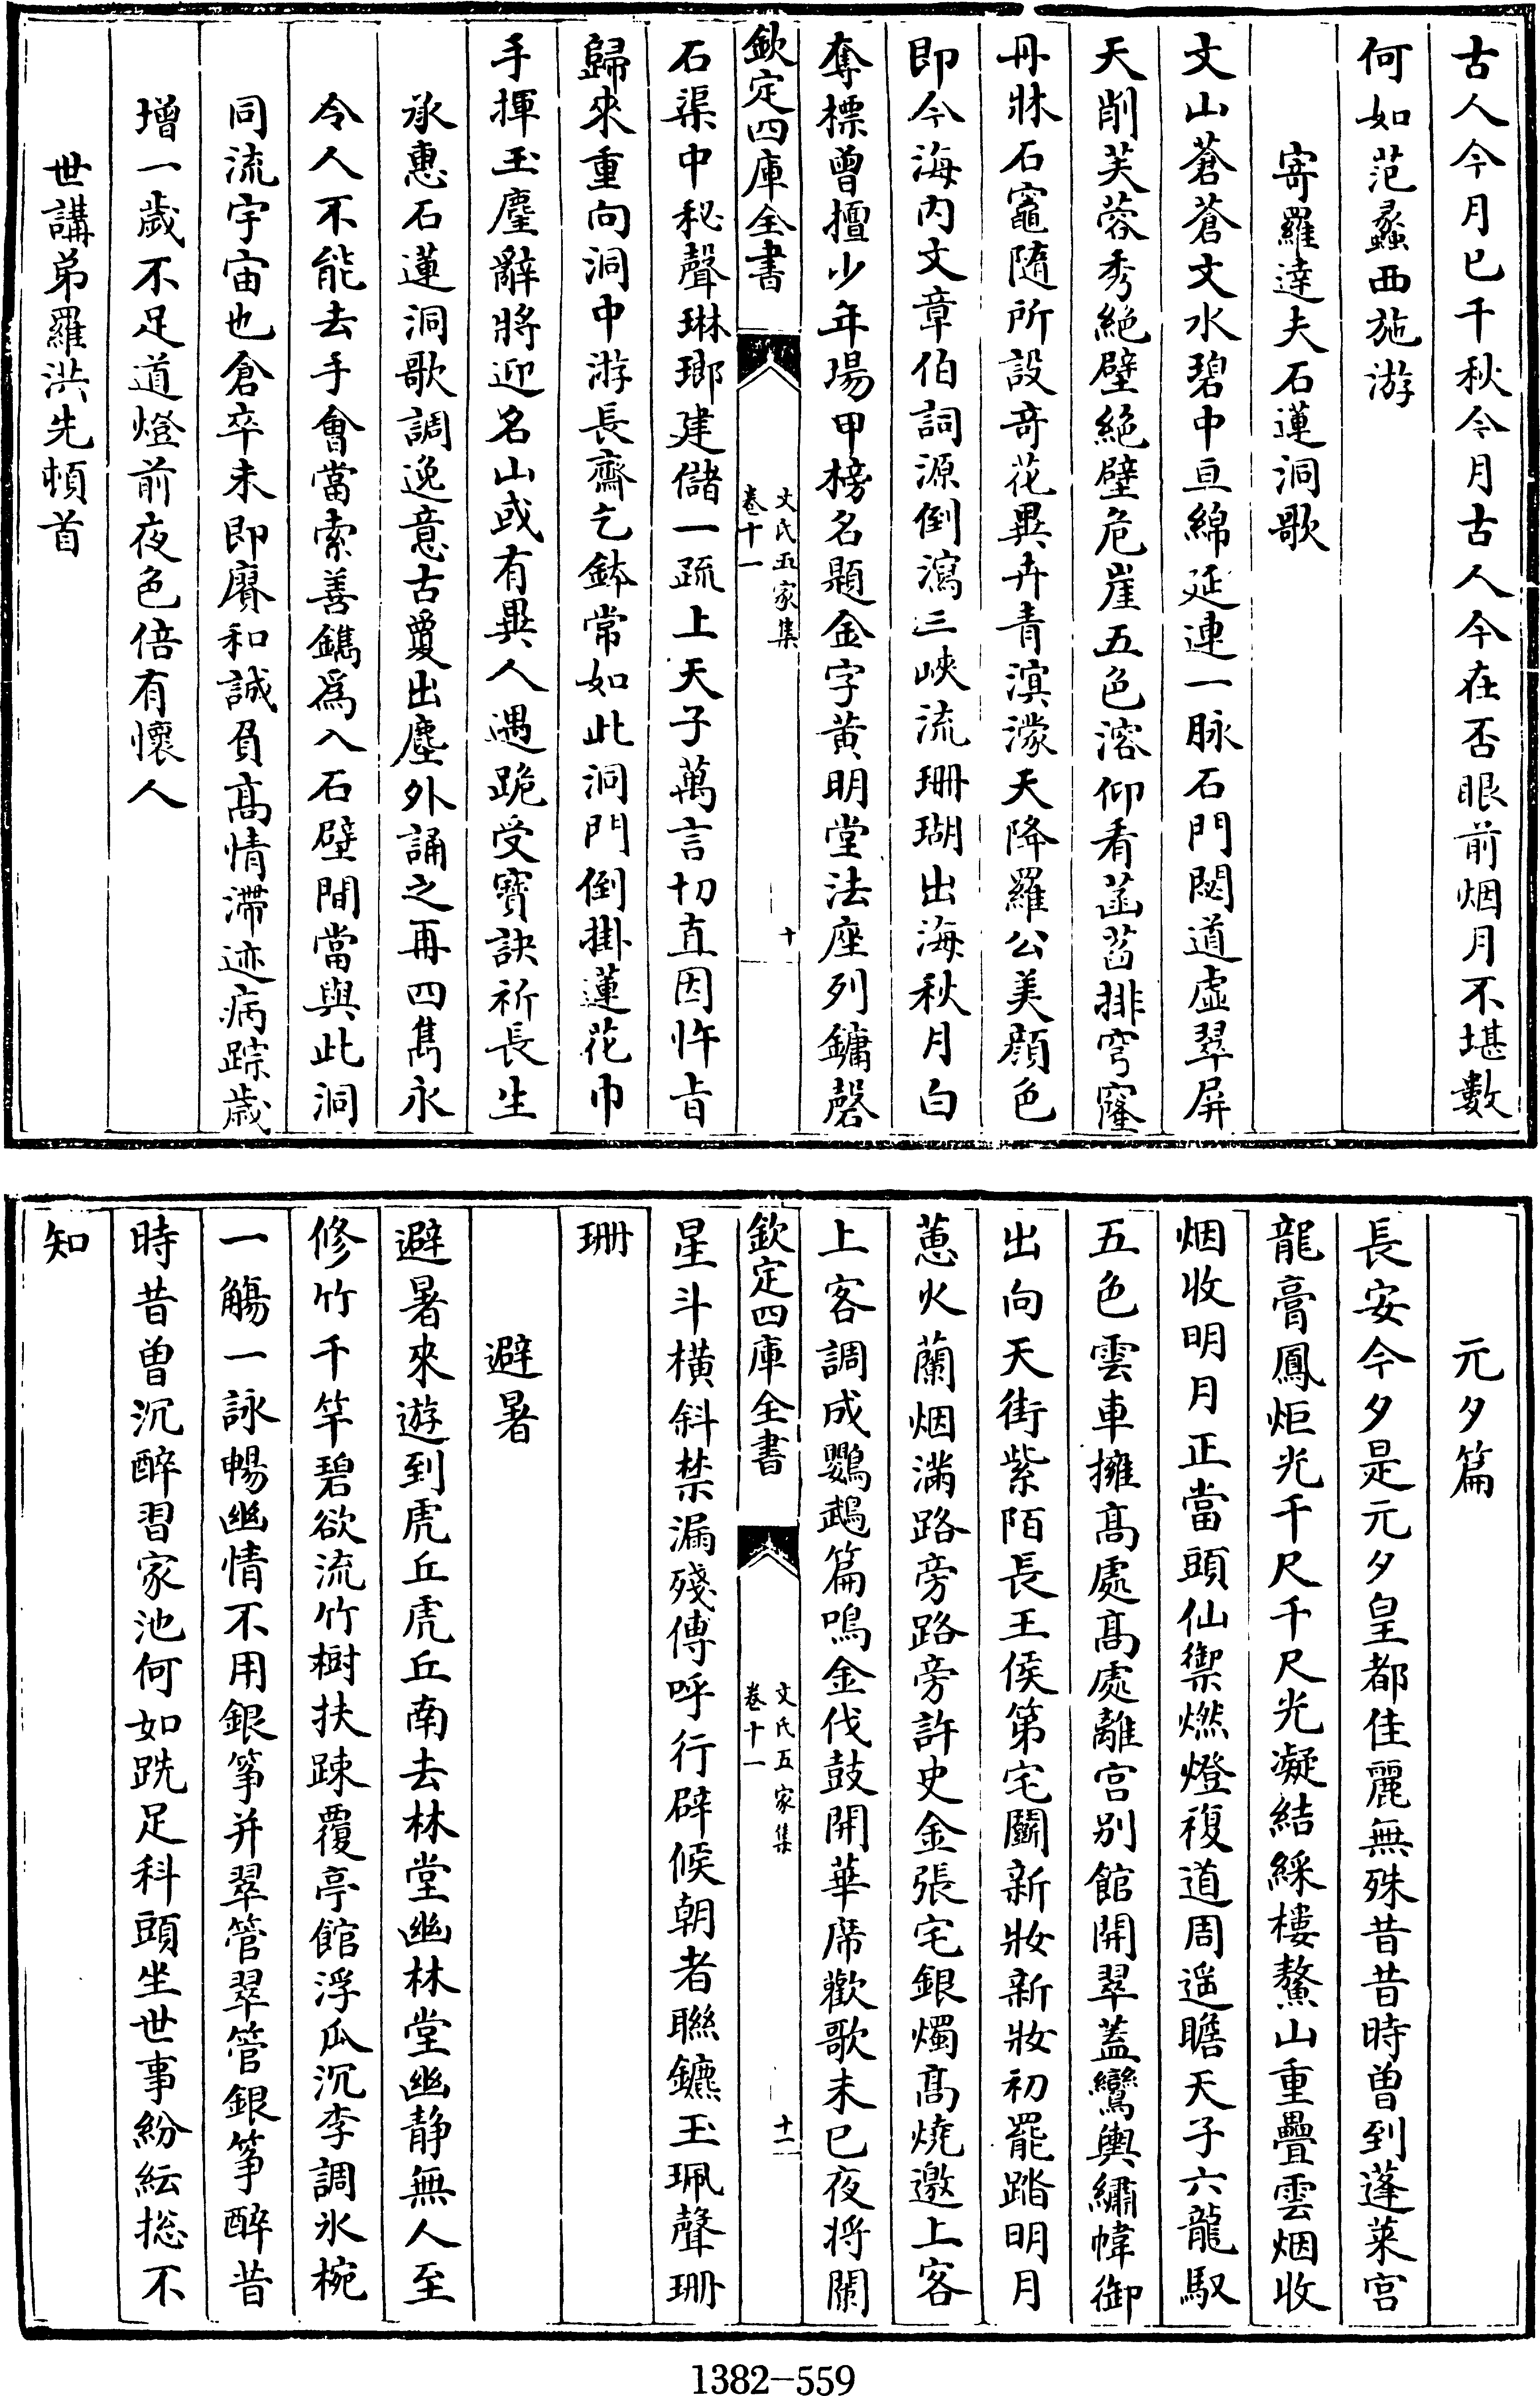 古人今月已千秋今月古人今在否眼前烟月不堪數
何如范蠡西施游
寄羅達夫石蓮洞歌
文山蒼蒼文水碧中亘綿延連一脉石門閟道虛翠屏
天削芙蓉秀絶壁絶壁危崖五色溶仰看菡萏排穹窿
丹牀石竈隨所設竒花異卉青溟濛天降羅公美顔色
即今海内文章伯詞源倒瀉三峽流珊瑚出海秋月白
奪標曾擅少年場甲榜名題金字黄明堂法座列鏞磬
欽定四庫全書
文氏五家集
卷十一
十
石渠中秘聲琳瑯建儲一疏上天子萬言切直因忤㫖
歸來重向洞中游長齋乞鉢常如此洞門倒掛蓮花巾
手揮玉麈辭將迎名山或有異人遇跪受寳訣祈長生
承惠石蓮洞歌調逸意古敻出塵外誦之再四雋永
令人不能去手會當索善鐫爲入石壁間當與此洞
同流宇宙也倉卒未即賡和誠負髙情滯迹病踪歳
增一歳不足道燈前夜色倍有懷人
世講弟羅洪先頓首
元夕篇
長安今夕是元夕皇都佳麗無殊昔昔時曽到蓬萊宫
龍膏鳳炬光千尺千尺光凝結綵樓鰲山重疊雲烟收
烟收明月正當頭仙禦燃燈複道周遥瞻天子六龍馭
五色雲車擁髙處髙處離宫别館開翠蓋鸞輿繡幃御
出向天街紫陌長王侯第宅鬬新妝新妝初罷踏明月
蔥火蘭烟滿路旁路旁許史金張宅銀燭髙燒邀上客
上客調成鸚鵡篇鳴金伐鼓開華席歡歌未已夜將闌
欽定四庫全書
文氏五家集
卷十一
十一
星斗橫斜禁漏殘傳呼行辟候朝者聯鑣玉珮聲珊
珊
避暑
避暑來遊到虎丘虎丘南去林堂幽林堂幽静無人至
修竹千竿碧欲流竹樹扶踈覆亭館浮瓜沉李調氷椀
一觴一詠暢幽情不用銀筝并翠管翠管銀筝醉昔
時昔曽沉醉習家池何如跣足科頭坐世事紛紜揔不
知
1382-559